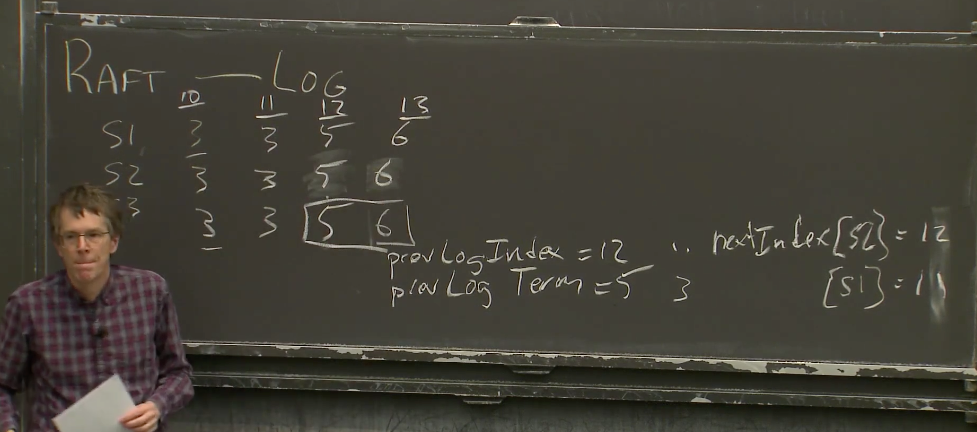 RAFT — LOG
10 11 12 13
S1 3 3 5 6
S2 3 3 5 6
3 3 3 5 6
prevLogIndex = 12 .. nextIndex[S2] = 12
prevLog Term = 5 3 [S1] = 11